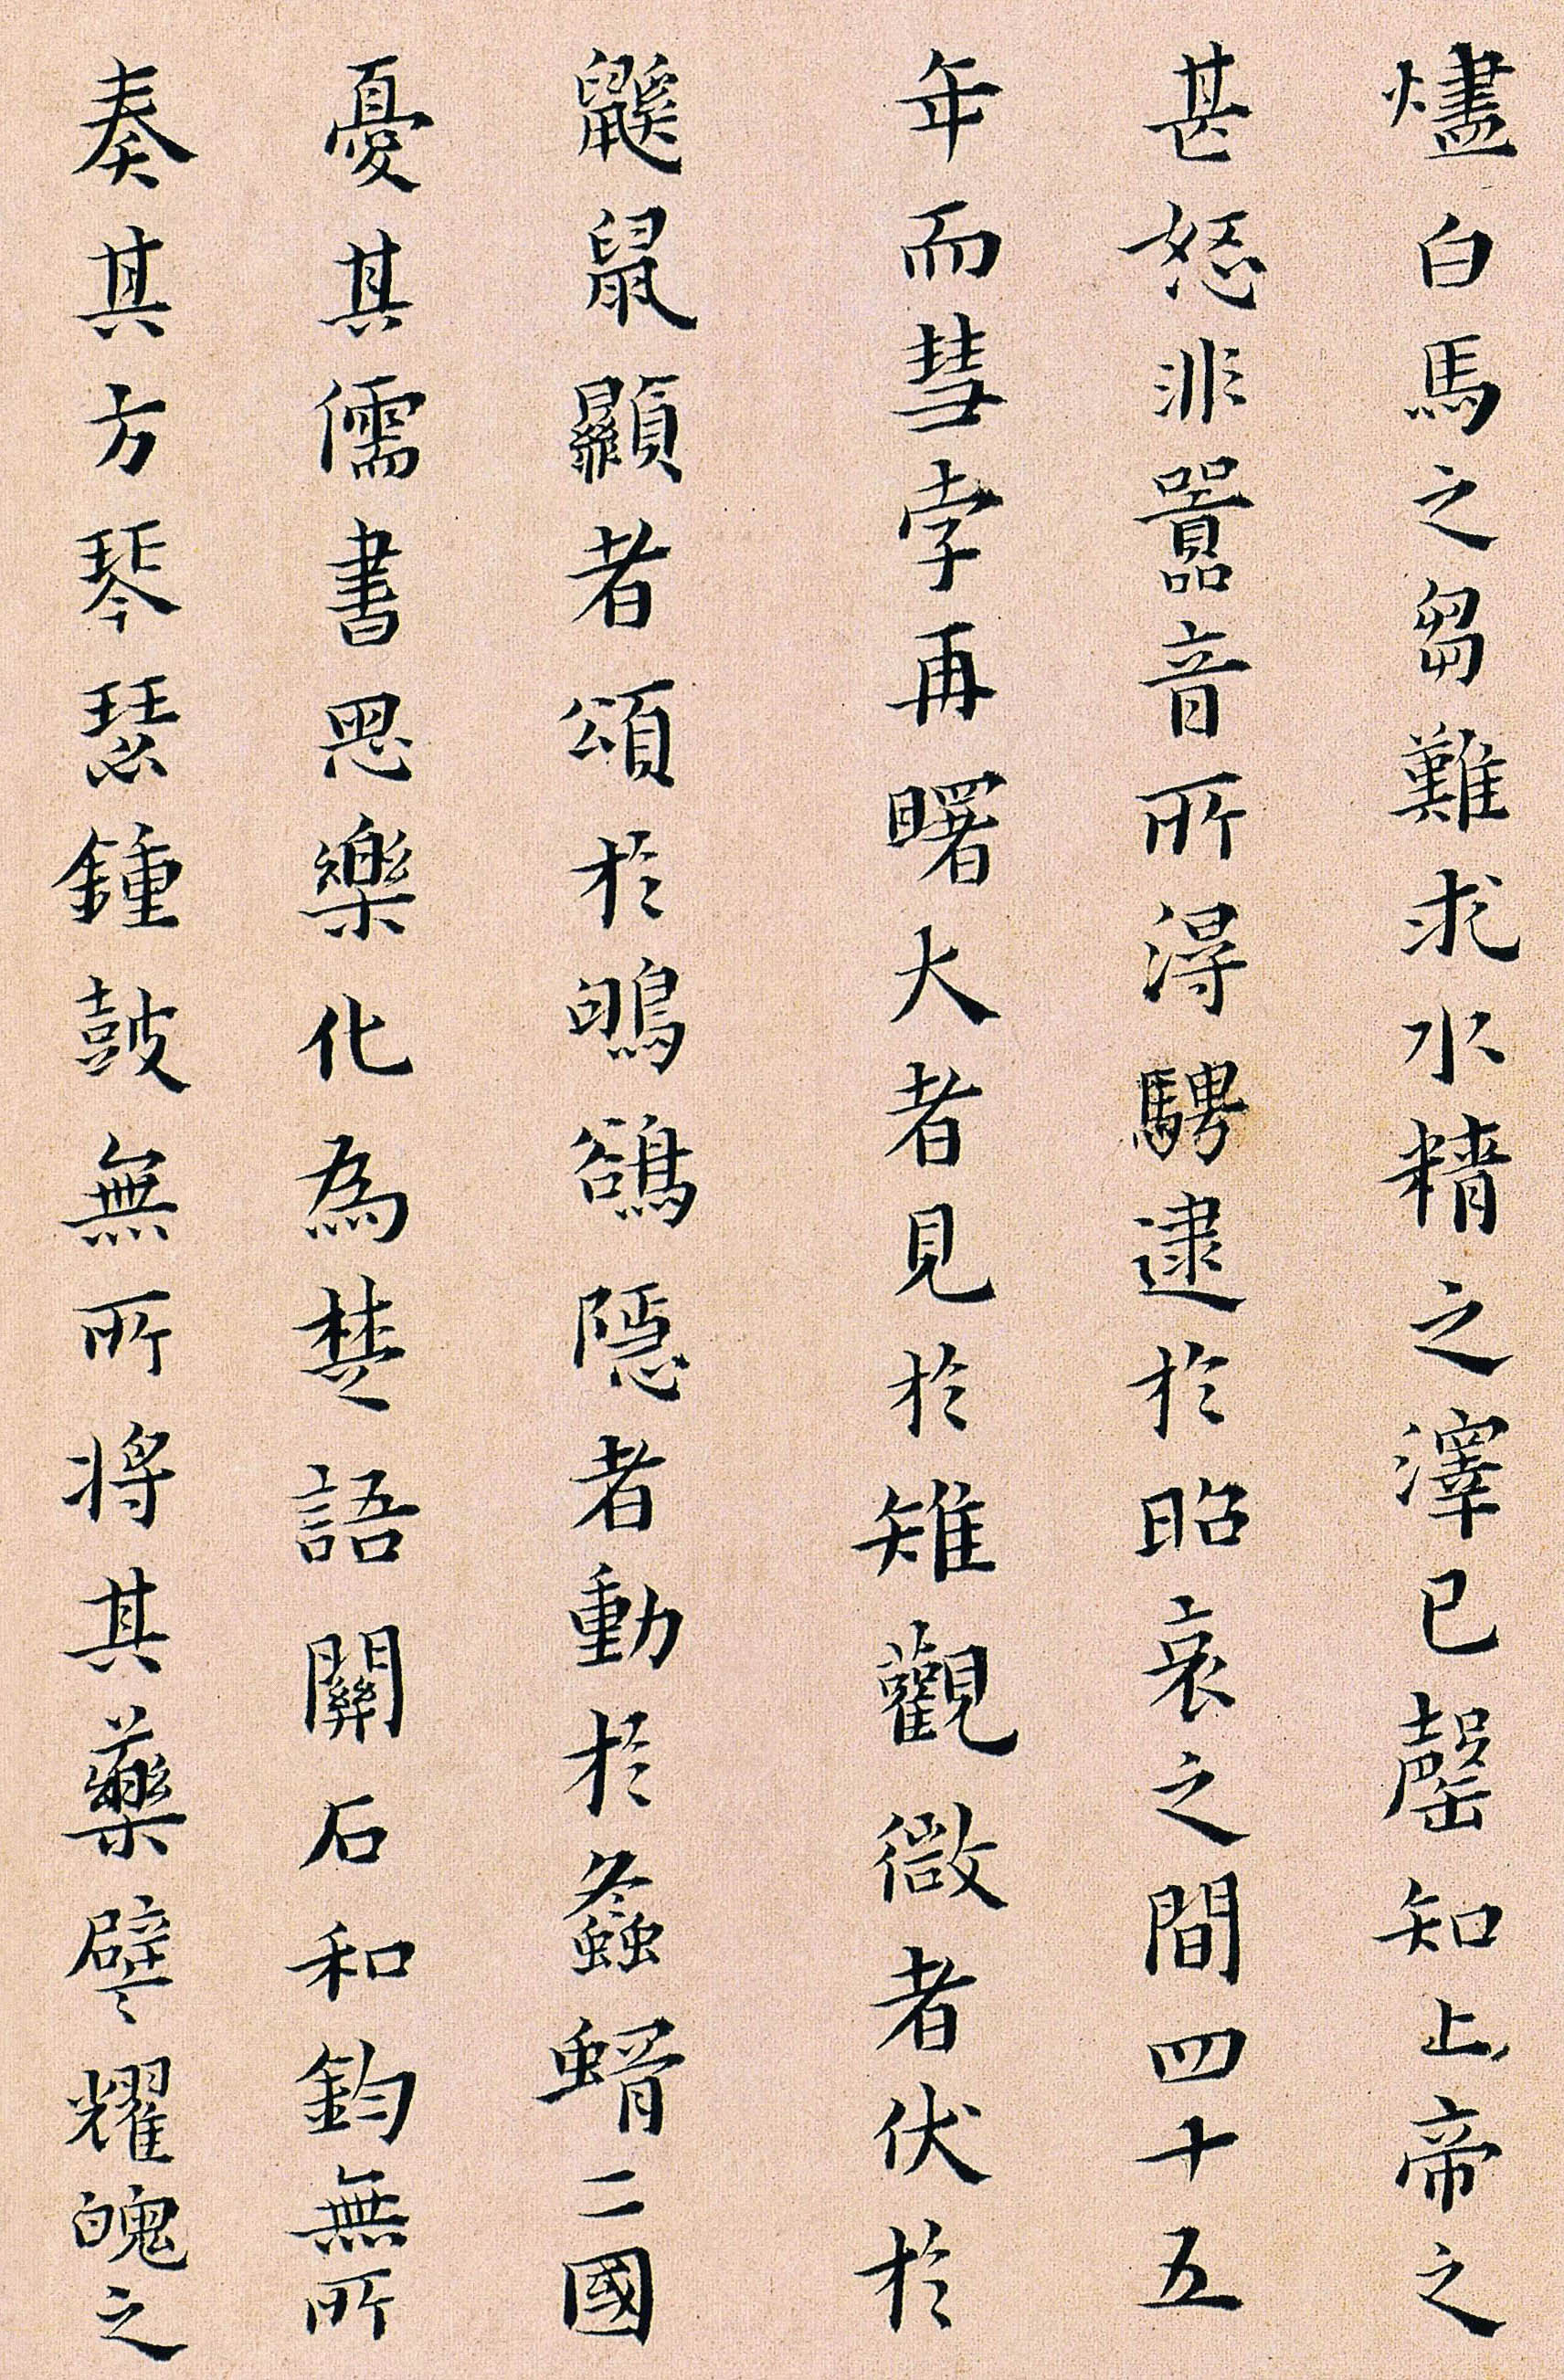 燼白馬之芻難求水精之澤已罄知上帝之
甚怒非囂音所得騁逮於昭哀之間四十五
年而彗孛再曙大者見於雉觀微者伏於
鼷鼠顯者頌於鴝鵒隱者動於螽蝑二國
憂其儒書思樂化為楚語關石和鈞無所
奏其方琴瑟鍾鼓無所將其藥譬耀魄之